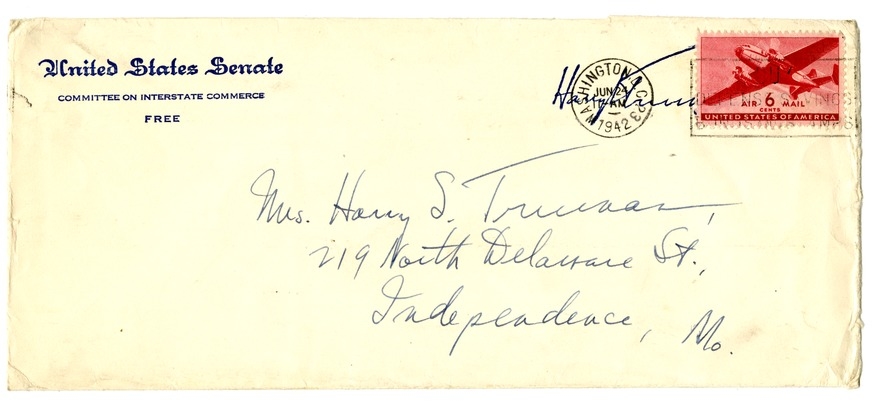 United States Senate
COMMITTEE ON INTERSTATE COMMERCE
FREE
Harry
WASHINGTON, D.C.
JUN 24
AM
1942
AIR 6 MAIL
CENTS
UNITED STATES OF AMERICA
Mrs. Harry S. Truman,
219 North Delaware St.,
Independence, Mo.